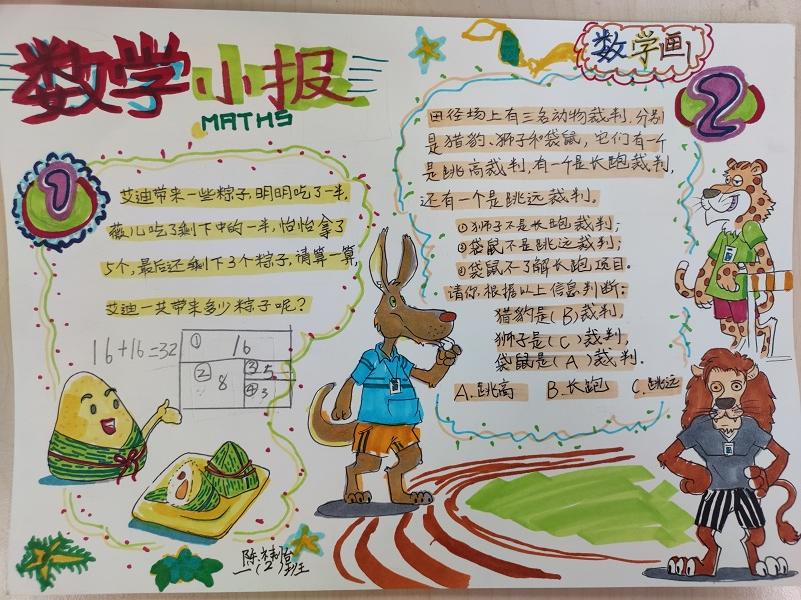 数学小报
MATHS
1
艾迪带来一些粽子,明明吃了一半,
薇儿吃了剩下中的一半,怡怡拿了
5个,最后还剩下3个粽子,请算一算,
艾迪一共带来多少粽子呢?
16+16=32
① 16
② 8
③ 5
④ 3
数学画
2
田径场上有三名动物裁判,分别
是猎豹、狮子和袋鼠,它们有一个
是跳高裁判,有一个是长跑裁判,
还有一个是跳远裁判。
①狮子不是长跑裁判;
②袋鼠不是跳远裁判;
③袋鼠不了解长跑项目。
请你根据以上信息判断:
猎豹是(B)裁判,
狮子是(C)裁判,
袋鼠是(A)裁判.
A.跳高 B.长跑 C.跳远
一(2)班